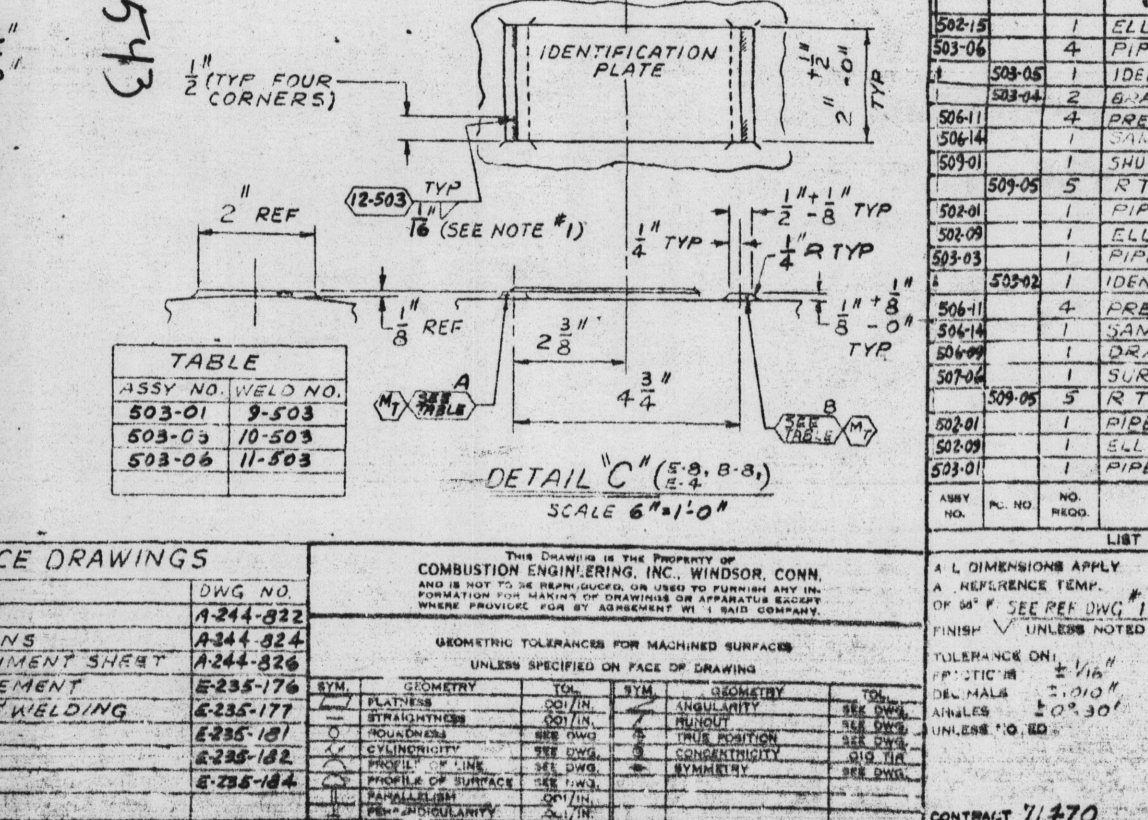 543
IDENTIFICATION
PLATE
1/2" (TYP FOUR
CORNERS)
2" + 1/2" - 0"
TYP
12-503
TYP
1/16" (SEE NOTE #1)
2" REF
1/8" REF
1/4" TYP
1/2" + 1/8" - 1/8" TYP
1/4" R TYP
1/8" + 1/8" - 0"
TYP
2 3/8"
4 3/4"
MT
SEE
TABLE
A
B
SEE
TABLE
MT
DETAIL "C" (E-8, B-8,
E-4)
SCALE 6"=1'-0"
TABLE
ASSY NO. WELD NO.
503-01 9-503
503-03 10-503
503-06 11-503
502-15 1 ELL
503-06 4 PIP
503-05 1 IDE
503-04 2 BRA
506-11 4 PRE
506-14 1 SAM
509-01 1 SHU
509-05 5 R T
502-01 1 PIP
502-09 1 ELL
503-03 1 PIP
503-02 1 IDEN
506-11 4 PRE
506-14 1 SAM
506-09 1 DRA
507-06 1 SUR
509-05 5 R T
502-01 1 PIPE
502-09 1 ELL
503-01 1 PIPE
ASSY
NO. PC. NO. NO.
REQD.
LIST
CE DRAWINGS
DWG NO.
A-244-822
NS A-244-824
NMENT SHEET A-244-826
EMENT E-235-176
WELDING E-235-177
E-235-181
E-235-182
E-235-184
THIS DRAWING IS THE PROPERTY OF
COMBUSTION ENGINEERING, INC., WINDSOR, CONN.
AND IS NOT TO BE REPRODUCED, OR USED TO FURNISH ANY IN-
FORMATION FOR MAKING OF DRAWINGS OR APPARATUS EXCEPT
WHERE PROVIDED FOR BY AGREEMENT WITH SAID COMPANY.
GEOMETRIC TOLERANCES FOR MACHINED SURFACES
UNLESS SPECIFIED ON FACE OF DRAWING
SYM. GEOMETRY TOL. SYM. GEOMETRY TOL.
FLATNESS .001/IN. ANGULARITY SEE DWG.
STRAIGHTNESS .001/IN. RUNOUT SEE DWG.
ROUNDNESS SEE DWG. TRUE POSITION SEE DWG.
CYLINDRICITY SEE DWG. CONCENTRICITY .010 TIR
PROFILE OF LINE SEE DWG. SYMMETRY SEE DWG.
PROFILE OF SURFACE SEE DWG.
PARALLELISM .001/IN.
PERPENDICULARITY .001/IN.
ALL DIMENSIONS APPLY
A REFERENCE TEMP.
OF 68° F. SEE REF DWG #1
FINISH √ UNLESS NOTED
TOLERANCE ON:
FRACTIONS ± 1/16"
DECIMALS ±.010"
ANGLES ± 0°-30'
UNLESS NOTED
CONTRACT 71470